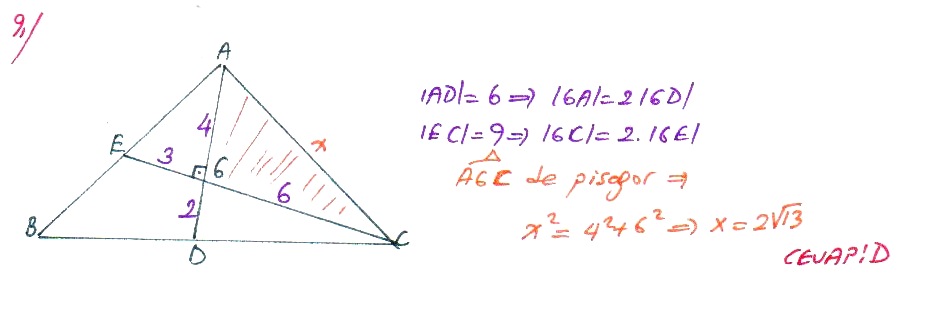 9)
A
E
3
4
G
6
x
2
B
D
C
|AD|= 6 ⇒ |GA|= 2|GD|
|EC|= 9 ⇒ |GC|= 2.|GE|
AGC de pisagor ⇒
x²= 4²+6² ⇒ x = 2√13
CEVAP:D